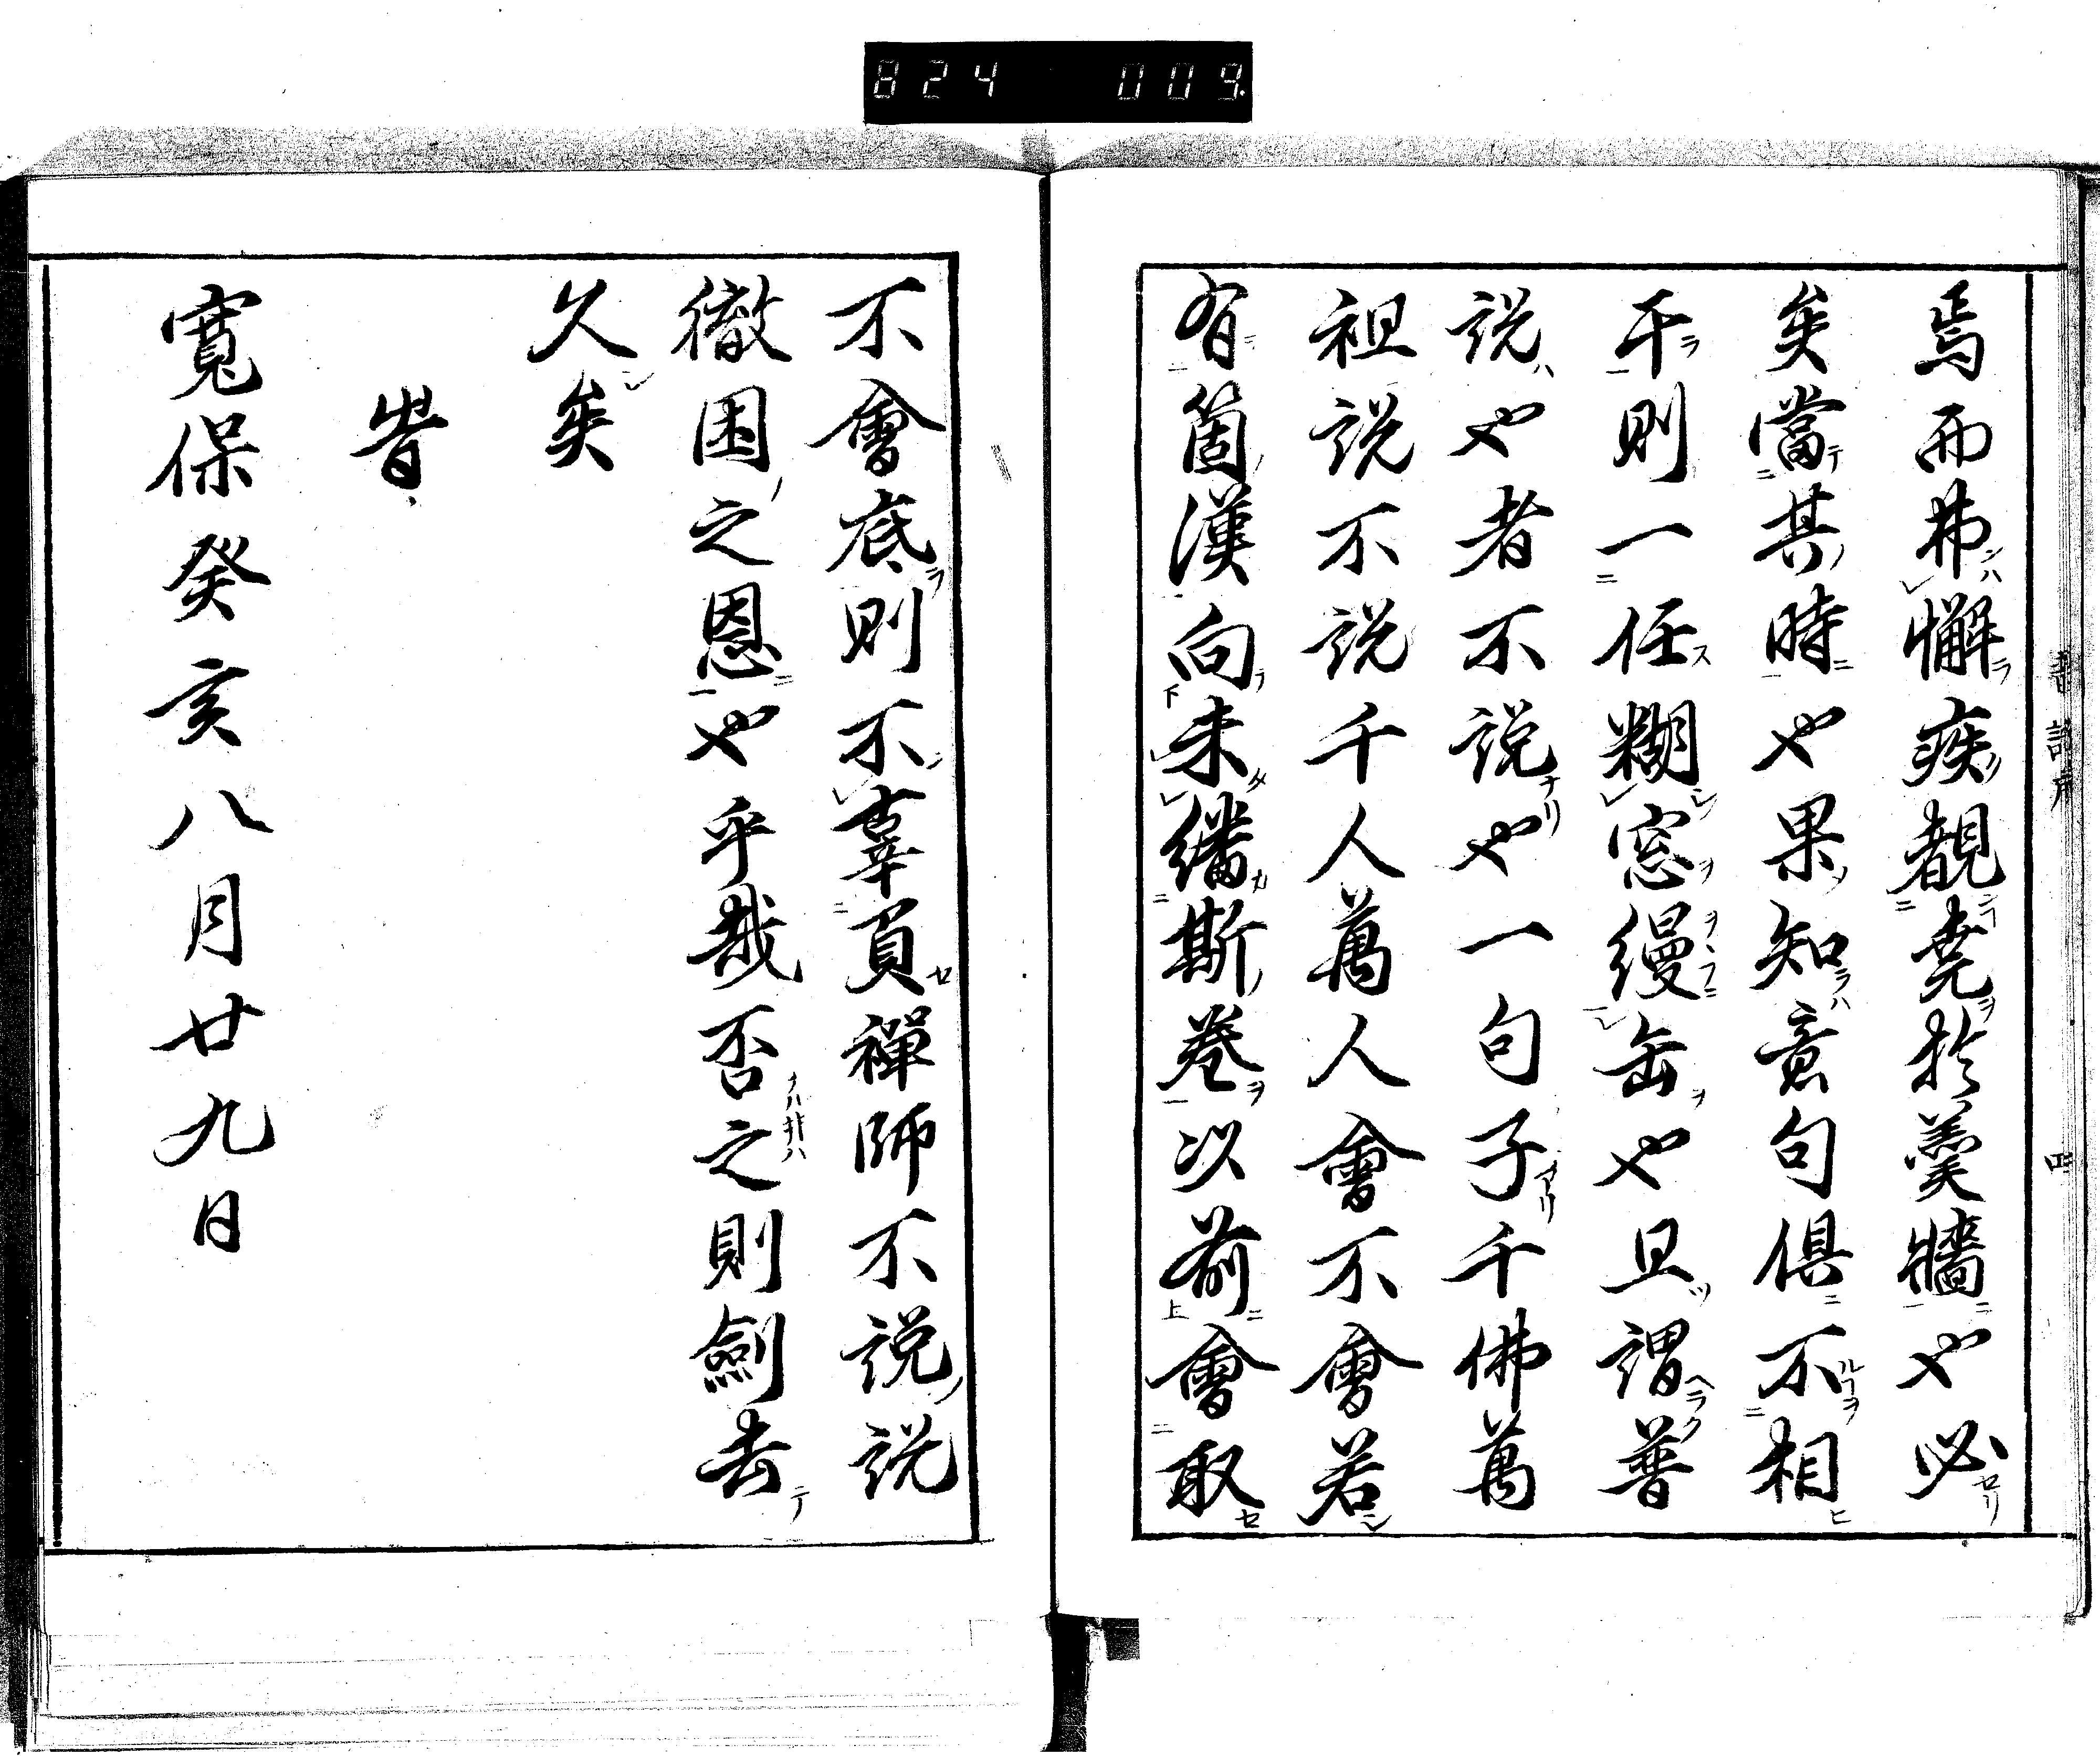 824 009
焉而弗懈疾覩堯於羹牆也必
矣當其時也果知意句俱不相
干則一任糊窓縵缶也且謂普
説也者不説也一句子千佛萬
祖説不説千人萬人會不會若
有箇漢向未繙斯卷以前會取
不會底則不辜負禪師不説説
徹困之恩也乎哉否之則劍去
久矣
旹
寬保癸亥八月廿九日